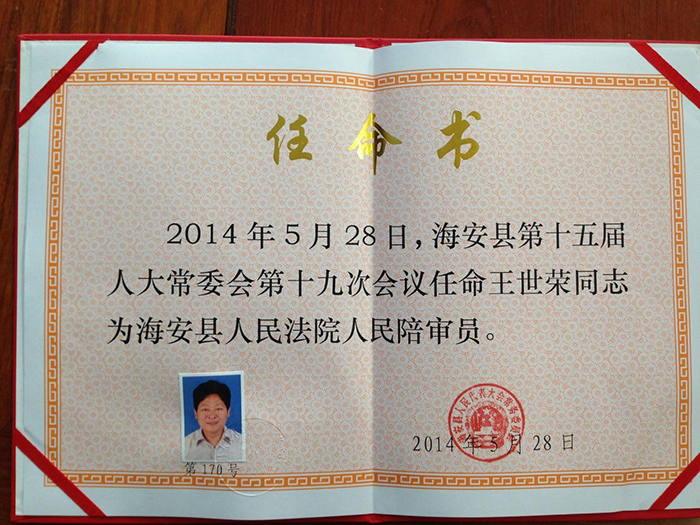 任命书
2014年5月28日，海安县第十五届
人大常委会第十九次会议任命王世荣同志
为海安县人民法院人民陪审员。
海安县人民代表大会常务委员会
第170号
2014年5月28日